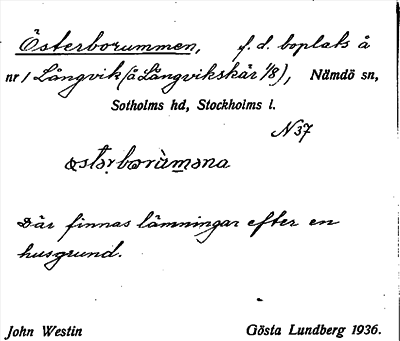 Österborummen, f. d. boplats å
nr 1 Långvik (å Långvikskär 1/8), Nämdö sn,
Sotholms hd, Stockholms l.
N 37
östərbərùməna
Där finnas lämningar efter en
husgrund.
John Westin Gösta Lundberg 1936.